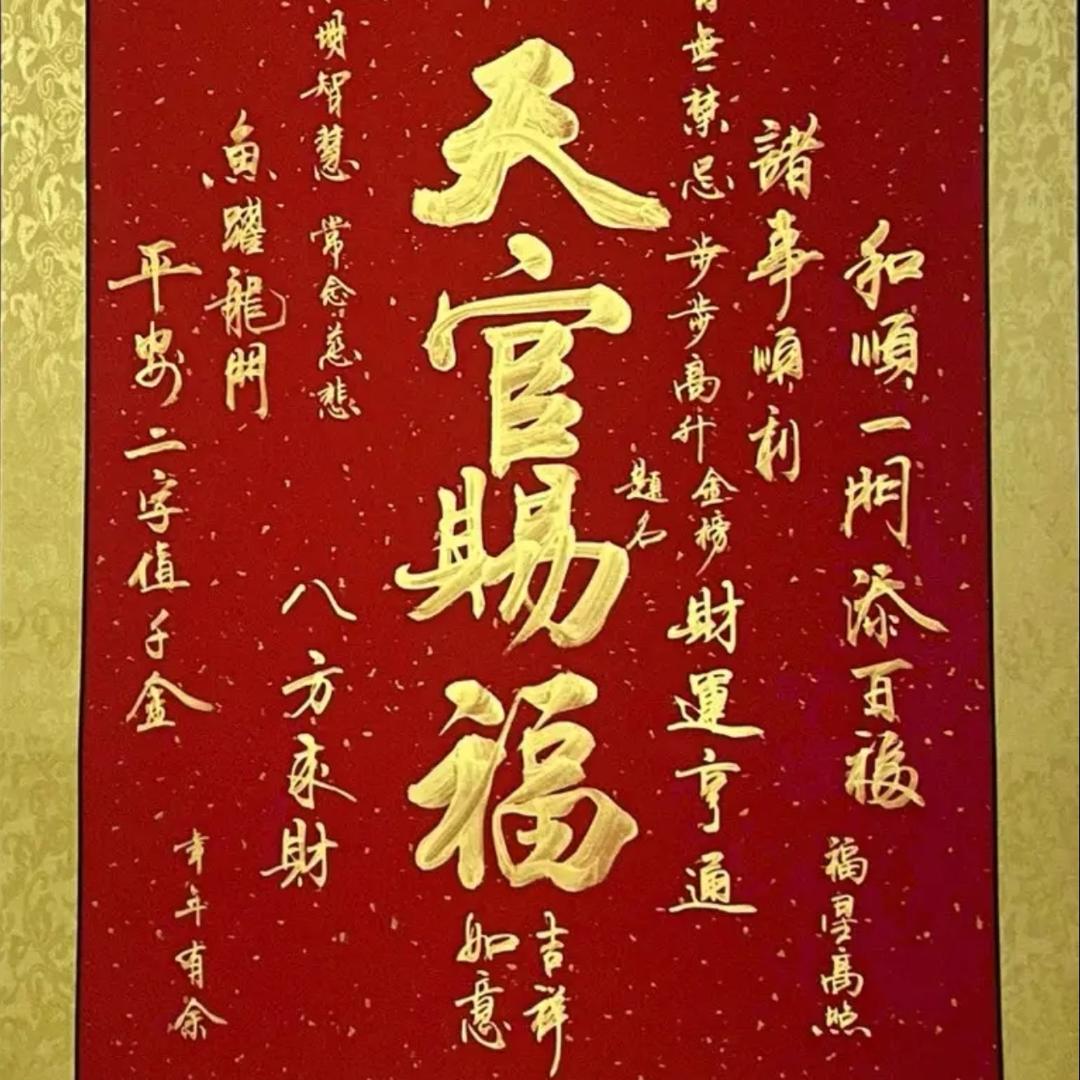 和順一門添百福
福星高照
諸事順利
無禁忌
步步高升
金榜
題名
財運亨通
天官賜福
吉祥
如意
明智慧
常念慈悲
八方來財
魚躍龍門
平安二字值千金
年年有余